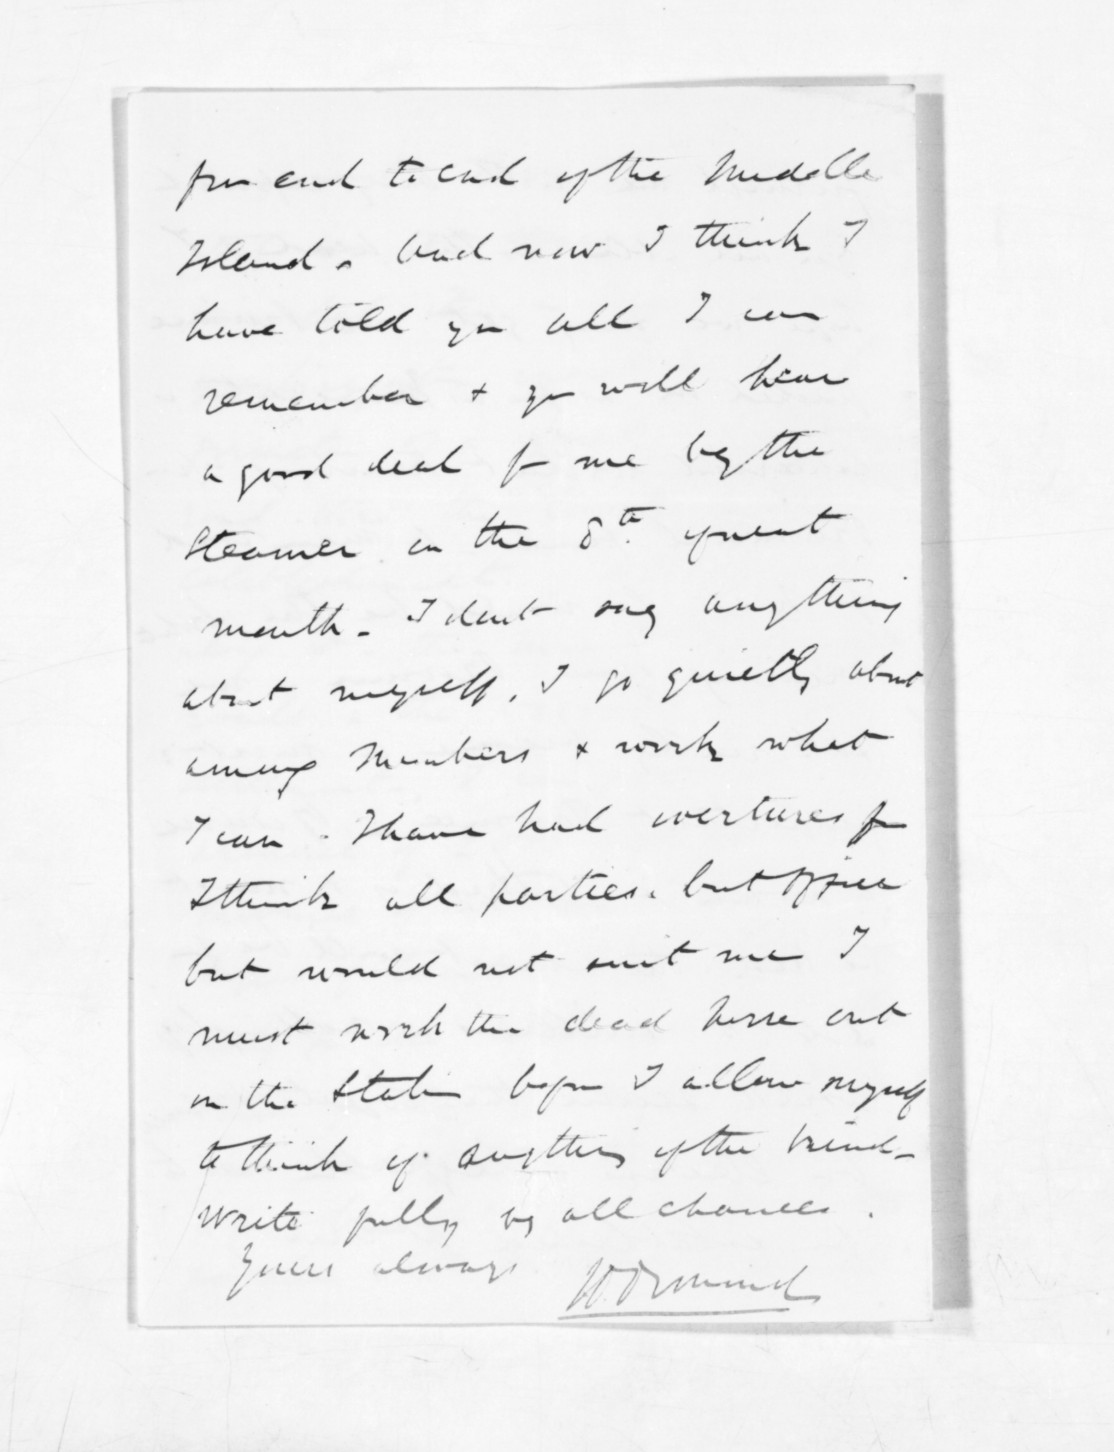 from end to end of the Middle
Island. And now I think I
have told you all I can
remember & you will hear
a good deal fr me by the
Steamer on the 8th of next
month. I dont say anything
about myself. I go quietly about
among Members & work what
I can. I have had overtures fr
I think all parties. but office
but would not suit me I
must work the dead horse out
on the Station before I allow myself
to think of anything of the kind.
Write fully by all chances.
Yours always W. Ormond